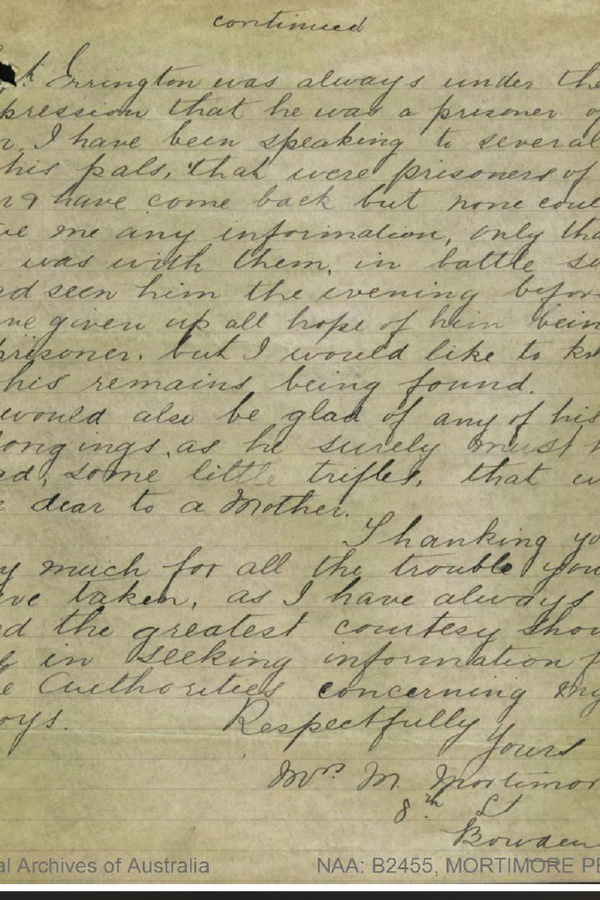 continued
t Errington was always under the
pression that he was a prisoner of
r. I have been speaking to several
his pals, that were prisoners of
r & have come back but none coul
ve me any information, only tha
was with them, in battle so
ad seen him the evening befor
ve given up all hope of him bein
prisoner. but I would like to kn
his remains, being found.
would also be glad of any of his
longings, as he surely must h
ad, some little trifles, that w
e dear to a Mother.
Thanking yo
y much for all the trouble you
ve taken, as I have always
ed the greatest courtesy show
e in seeking information f
e Authorities concerning my
oys.
Respectfully
Yours
Mrs M. Mortimor
8th St
Bowden
al Archives of Australia
NAA: B2455, MORTIMORE PE